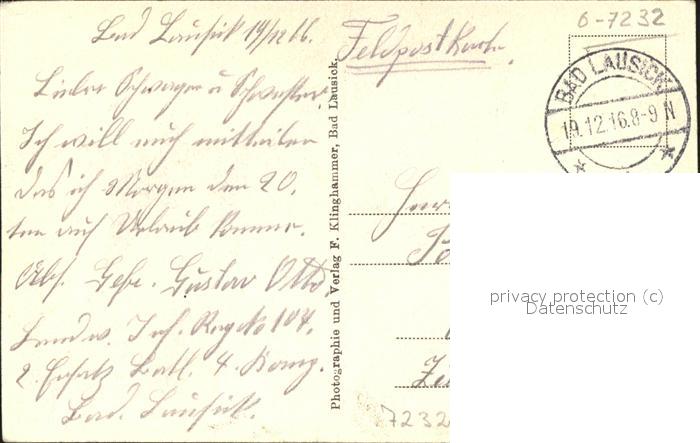 Bad Lausick 19/12 16.
Lieber Schwager u Schwester
Ich will euch mitteilen
das ich Morgen den 20.
ten auf Urlaub komme.
Abs. Gefr. Gustav Otto
Landw. Inf. Reg No 104.
2. Ersatz Batl. 4. Komp.
Bad. Lausick.
Photographie und Verlag F. Klinghammer, Bad Lausick.
Feldpostkarte.
6-7232
BAD LAUSICK
19.12.16.8-9 N
* *
privacy protection (c)
Datenschutz
7232